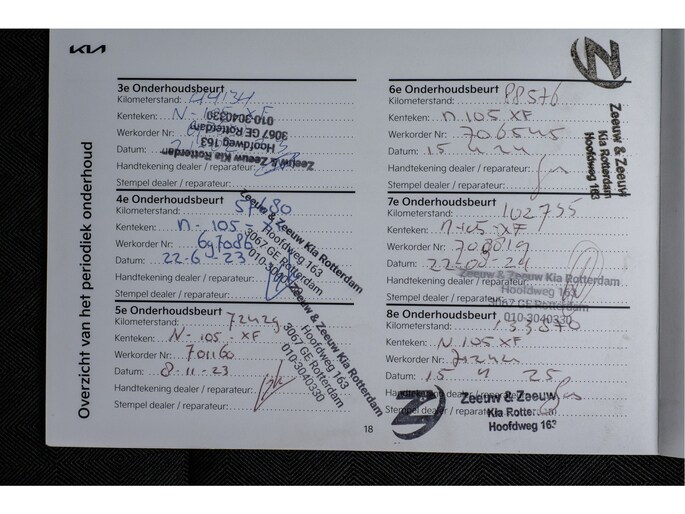 KIA
Overzicht van het periodiek onderhoud
3e Onderhoudsbeurt
Kilometerstand: 44134
Kenteken: N-105-XF
Werkorder Nr:
Datum:
Handtekening dealer / reparateur:
Stempel dealer / reparateur:
Zeeuw & Zeeuw Kia Rotterdam
Hoofdweg 163
3067 GE Rotterdam
010-3040330
4e Onderhoudsbeurt
Kilometerstand: 57680
Kenteken: N-105-
Werkorder Nr: 697086
Datum: 22-6-23
Handtekening dealer / reparateur:
Stempel dealer / reparateur:
Zeeuw & Zeeuw Kia Rotterdam
Hoofdweg 163
3067 GE Rotterdam
010-3040330
5e Onderhoudsbeurt
Kilometerstand: 72429
Kenteken: N-105, XF
Werkorder Nr: 701160
Datum: 8-11-23
Handtekening dealer / reparateur:
Stempel dealer / reparateur:
Zeeuw & Zeeuw Kia Rotterdam
Hoofdweg 163
3067 GE Rotterdam
010-3040330
6e Onderhoudsbeurt
Kilometerstand: 88576
Kenteken: N.105.XF
Werkorder Nr: 706545
Datum: 15 4 24
Handtekening dealer / reparateur:
Stempel dealer / reparateur:
Zeeuw & Zeeuw
Kia Rotterdam
Hoofdweg 163
7e Onderhoudsbeurt
Kilometerstand: 102755
Kenteken: N-105-XF
Werkorder Nr: 708819
Datum: 22-08-24
Handtekening dealer / reparateur:
Stempel dealer / reparateur:
Zeeuw & Zeeuw Kia Rotterdam
Hoofdweg 163
3067 GE Rotterdam
010-3040330
8e Onderhoudsbeurt
Kilometerstand:
Kenteken: N.105.XF
Werkorder Nr:
Datum: 15 4 25
Handtekening dealer / reparateur:
Stempel dealer / reparateur:
Zeeuw & Zeeuw
Kia Rotterdam
Hoofdweg 163
18